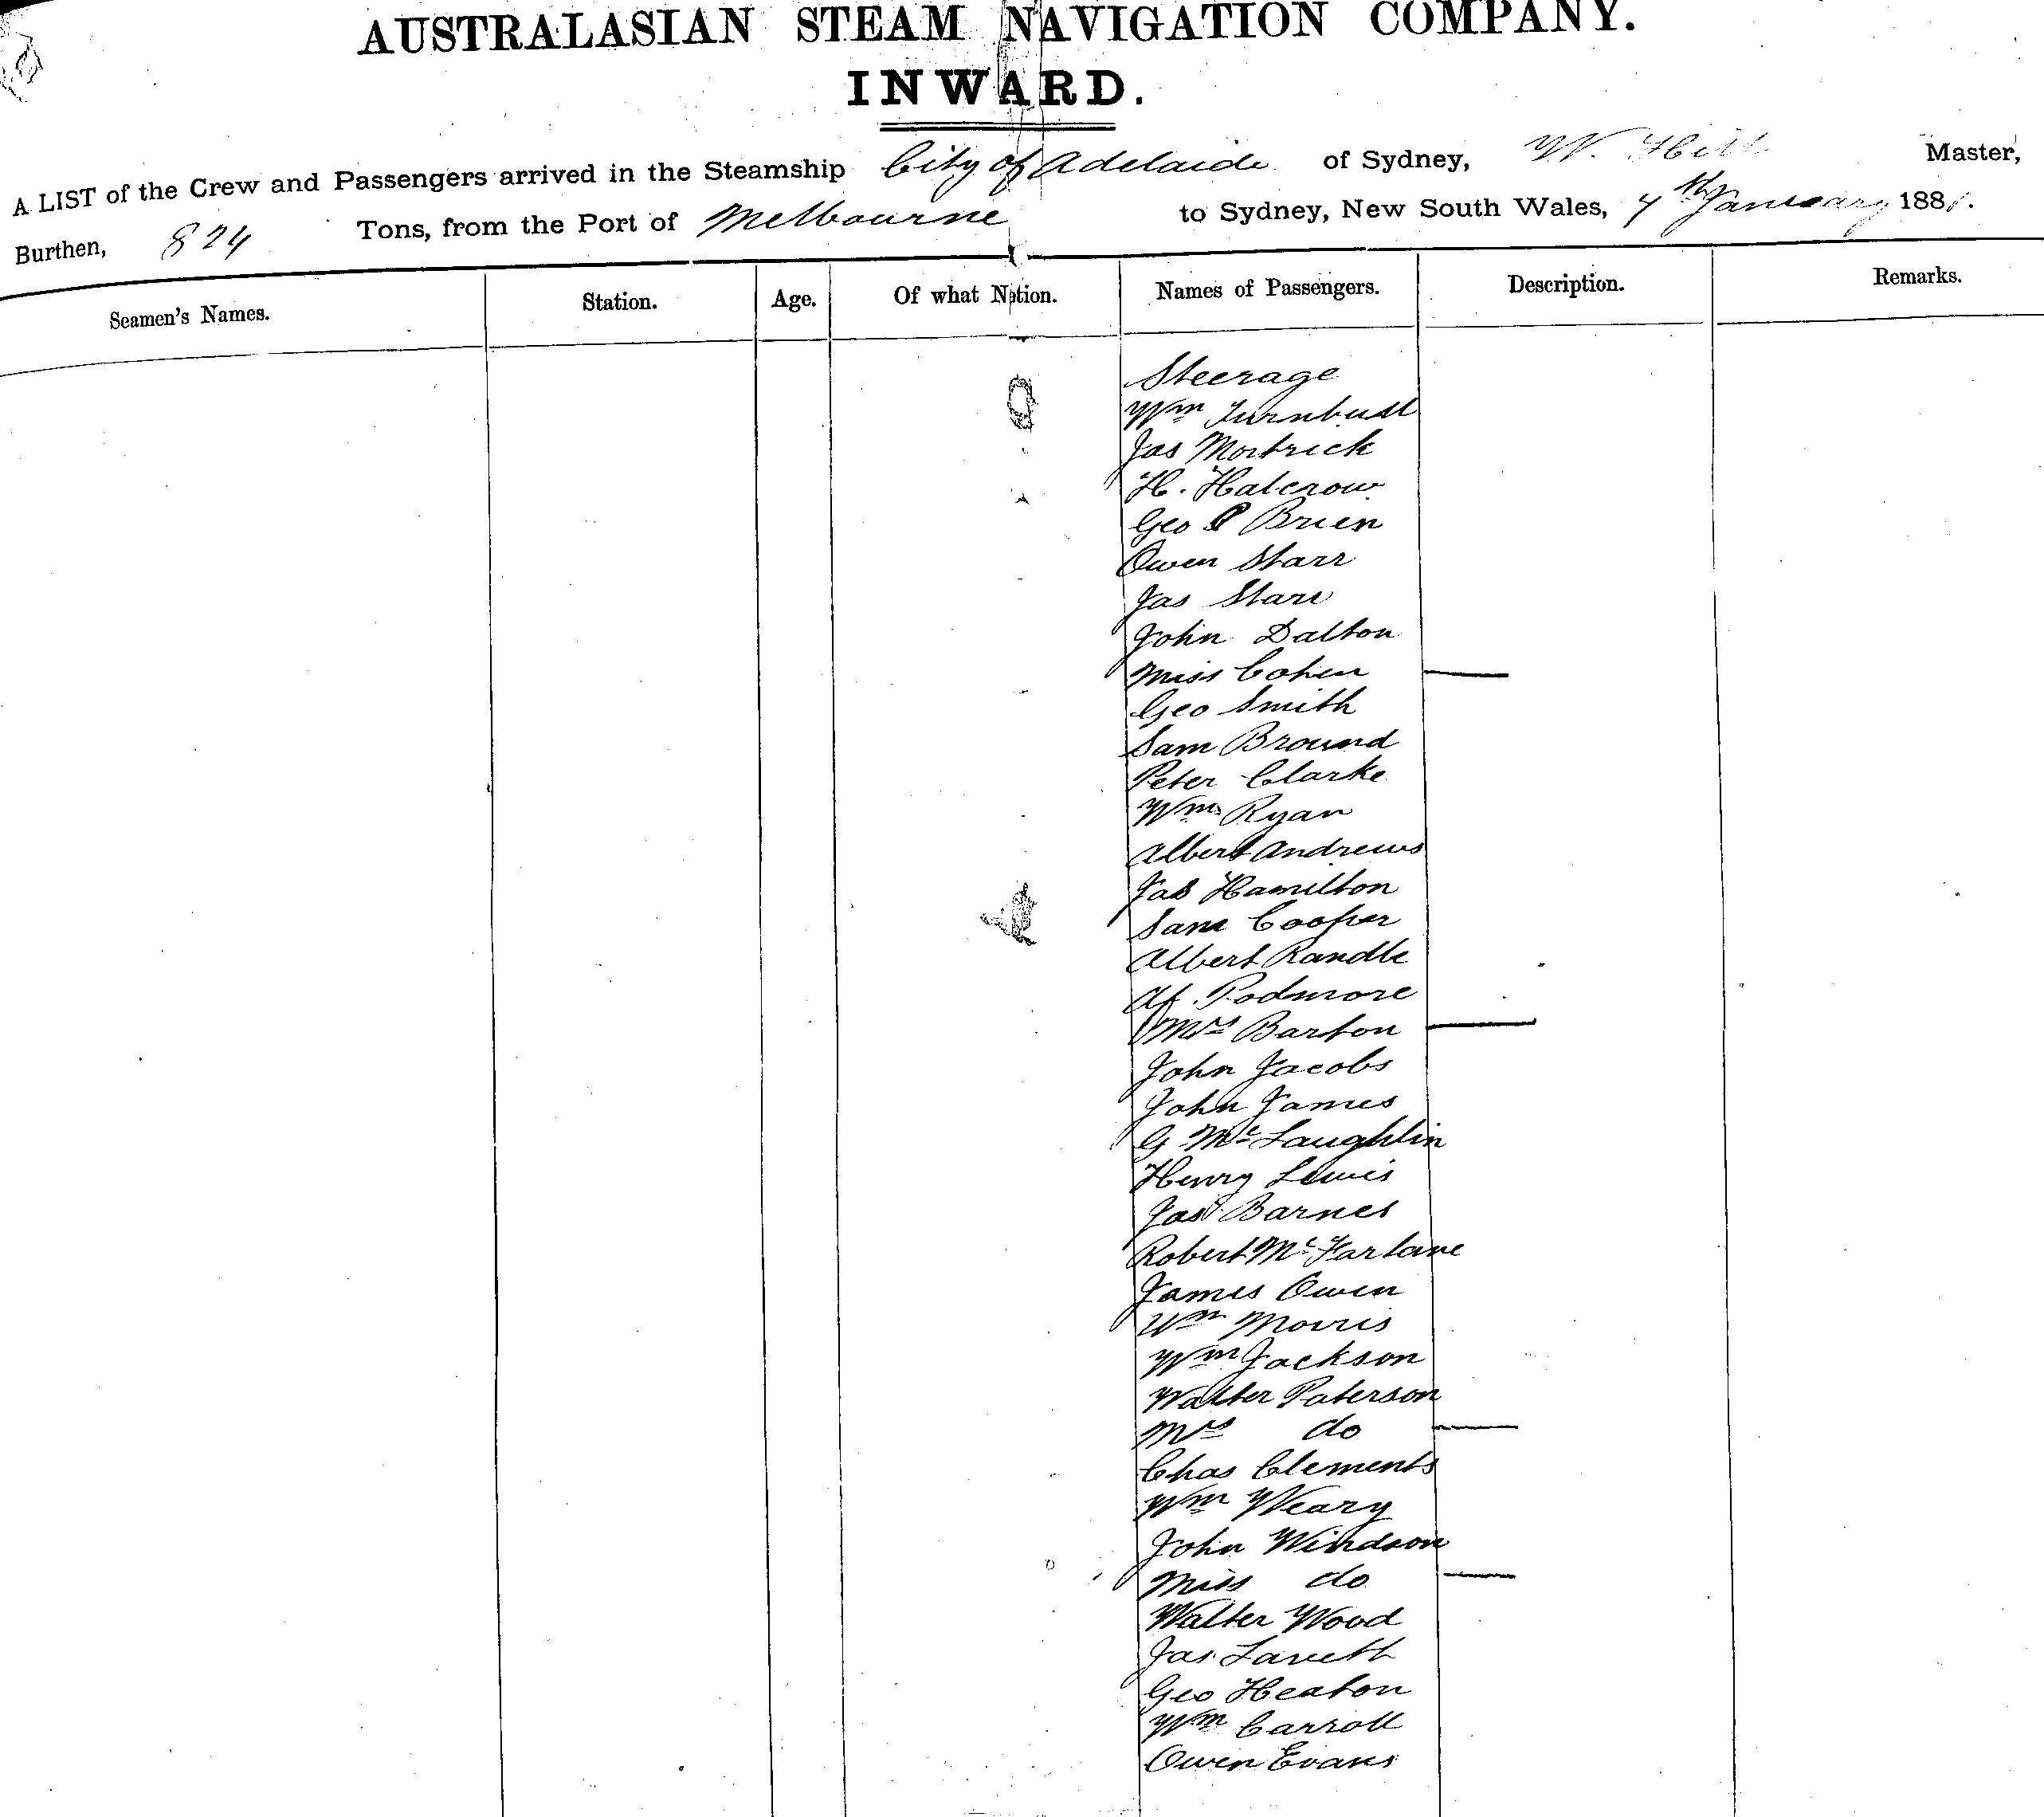 AUSTRALASIAN STEAM NAVIGATION COMPANY.
INWARD.
A LIST of the Crew and Passengers arrived in the Steamship City of Adelaide of Sydney, W. Hill Master,
Burthen, 824 Tons, from the Port of Melbourne to Sydney, New South Wales, 4th January 1881.
Seamen's Names. Station. Age. Of what Nation. Names of Passengers. Description. Remarks.
Steerage
Wm Turnbull
Jas Mortrick
H. Halcrow
Geo Brien
Owen Starr
Jas Starr
John Dalton
Miss Cohen
Geo Smith
Sam Bround
Peter Clarke
Wm Ryan
Albert Andrews
Jas Hamilton
Sam Cooper
Albert Randle
Af. Podmore
Mrs Barton
John Jacobs
John James
G McLaughlin
Henry Lewis
Jas Barnes
Robert McFarlane
James Owen
Wm Morris
Wm Jackson
Walter Paterson
Mrs do
Chas Clements
Wm Weary
John Windson
Miss do
Walter Wood
Jas Lavett
Geo Heaton
Wm Carroll
Owen Evans